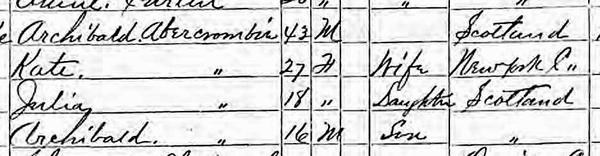 Archibald Abercrombie 43 M Scotland
Kate. " 27 F Wife New York C"
Julia " 18 " Daughter Scotland
Archibald. " 16 M Son "